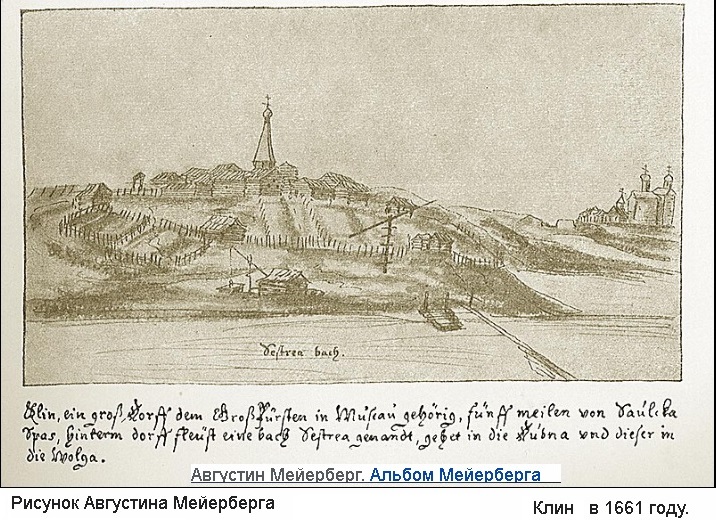 Sestrea bach.
Klin, ein groß Dorff dem GroßFürsten in Muscau gehörig, fünff meilen von Saulcka
Spas, hinterm dorff fleüst eine bach Sestrea genandt, gehet in die Dubna vnd dieser in
die Wolga.
Августин Мейерберг. Альбом Мейерберга
Рисунок Августина Мейерберга
Клин в 1661 году.